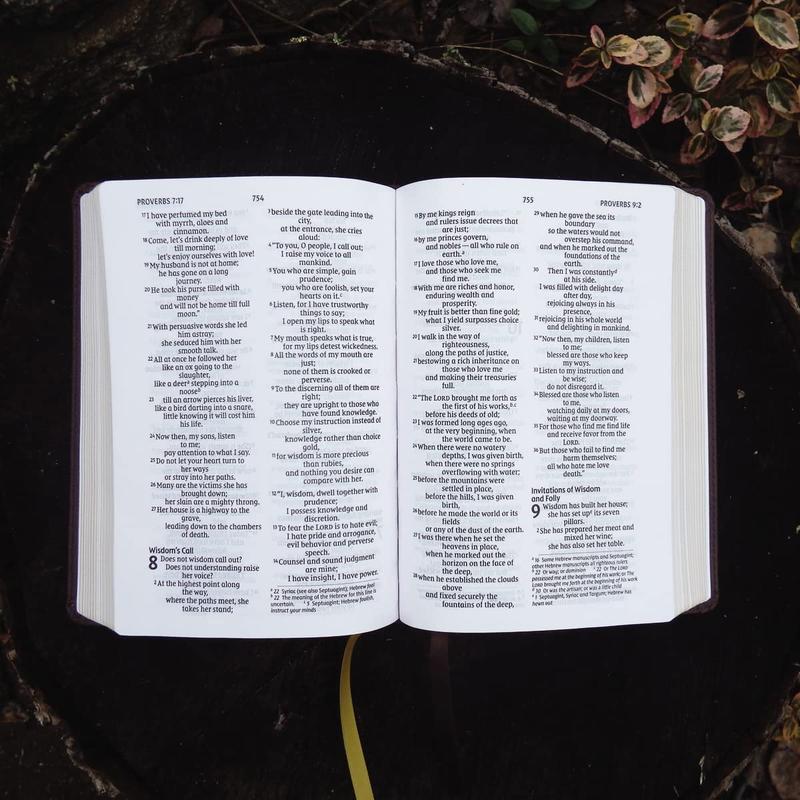 PROVERBS 7:17
754
17 I have perfumed my bed
with myrrh, aloes and
cinnamon.
18 Come, let's drink deeply of love
till morning;
let's enjoy ourselves with love!
19 My husband is not at home;
he has gone on a long
journey.
20 He took his purse filled with
money
and will not be home till full
moon."
21 With persuasive words she led
him astray;
she seduced him with her
smooth talk.
22 All at once he followed her
like an ox going to the
slaughter,
like a deer a stepping into a
noose b
23 till an arrow pierces his liver,
like a bird darting into a snare,
little knowing it will cost him
his life.
24 Now then, my sons, listen
to me;
pay attention to what I say.
25 Do not let your heart turn to
her ways
or stray into her paths.
26 Many are the victims she has
brought down;
her slain are a mighty throng.
27 Her house is a highway to the
grave,
leading down to the chambers
of death.
Wisdom's Call
8 Does not wisdom call out?
Does not understanding raise
her voice?
2 At the highest point along
the way,
where the paths meet, she
takes her stand;
3 beside the gate leading into the
city,
at the entrance, she cries
aloud:
4 "To you, O people, I call out;
I raise my voice to all
mankind.
5 You who are simple, gain
prudence;
you who are foolish, set your
hearts on it. c
6 Listen, for I have trustworthy
things to say;
I open my lips to speak what
is right.
7 My mouth speaks what is true,
for my lips detest wickedness.
8 All the words of my mouth are
just;
none of them is crooked or
perverse.
9 To the discerning all of them are
right;
they are upright to those who
have found knowledge.
10 Choose my instruction instead of
silver,
knowledge rather than choice
gold,
11 for wisdom is more precious
than rubies,
and nothing you desire can
compare with her.
12 "I, wisdom, dwell together with
prudence;
I possess knowledge and
discretion.
13 To fear the LORD is to hate evil;
I hate pride and arrogance,
evil behavior and perverse
speech.
14 Counsel and sound judgment
are mine;
I have insight, I have power.
a 22 Syriac (see also Septuagint); Hebrew fool
b 22 The meaning of the Hebrew for this line is
uncertain. c 5 Septuagint; Hebrew foolish,
instruct your minds
755
PROVERBS 9:2
15 By me kings reign
and rulers issue decrees that
are just;
16 by me princes govern,
and nobles — all who rule on
earth. a
17 I love those who love me,
and those who seek me
find me.
18 With me are riches and honor,
enduring wealth and
prosperity.
19 My fruit is better than fine gold;
what I yield surpasses choice
silver.
20 I walk in the way of
righteousness,
along the paths of justice,
21 bestowing a rich inheritance on
those who love me
and making their treasuries
full.
22 "The LORD brought me forth as
the first of his works, b,c
before his deeds of old;
23 I was formed long ages ago,
at the very beginning, when
the world came to be.
24 When there were no watery
depths, I was given birth,
when there were no springs
overflowing with water;
25 before the mountains were
settled in place,
before the hills, I was given
birth,
26 before he made the world or its
fields
or any of the dust of the earth.
27 I was there when he set the
heavens in place,
when he marked out the
horizon on the face of
the deep,
28 when he established the clouds
above
and fixed securely the
fountains of the deep,
29 when he gave the sea its
boundary
so the waters would not
overstep his command,
and when he marked out the
foundations of the
earth.
30 Then I was constantly d
at his side.
I was filled with delight day
after day,
rejoicing always in his
presence,
31 rejoicing in his whole world
and delighting in mankind.
32 "Now then, my children, listen
to me;
blessed are those who keep
my ways.
33 Listen to my instruction and
be wise;
do not disregard it.
34 Blessed are those who listen
to me,
watching daily at my doors,
waiting at my doorway.
35 For those who find me find life
and receive favor from the
LORD.
36 But those who fail to find me
harm themselves;
all who hate me love
death."
Invitations of Wisdom
and Folly
9 Wisdom has built her house;
she has set up e its seven
pillars.
2 She has prepared her meat and
mixed her wine;
she has also set her table.
a 16 Some Hebrew manuscripts and Septuagint;
other Hebrew manuscripts all righteous rulers
b 22 Or way; or dominion c 22 Or The LORD
possessed me at the beginning of his work; or The
LORD brought me forth at the beginning of his work
d 30 Or was the artisan; or was a little child
e 1 Septuagint, Syriac and Targum; Hebrew has
hewn out